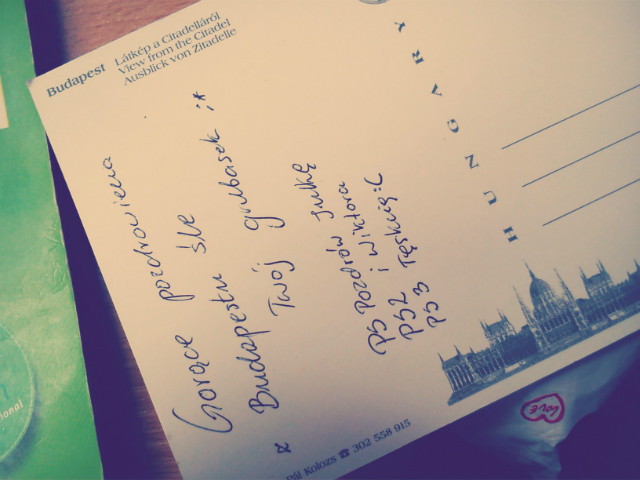 Budapest Látkép a Citadelláról
View from the Citadel
Ausblick von Zitadelle
Gorące pozdrowienia
z Budapesztu śle
Twój Grubasek :*
PS Pozdrów Julkę
PS2 i Wiktora
PS3 Tęsknię :C
HUNGARY
Pál Kolozs ☎ 302 558 915
Love